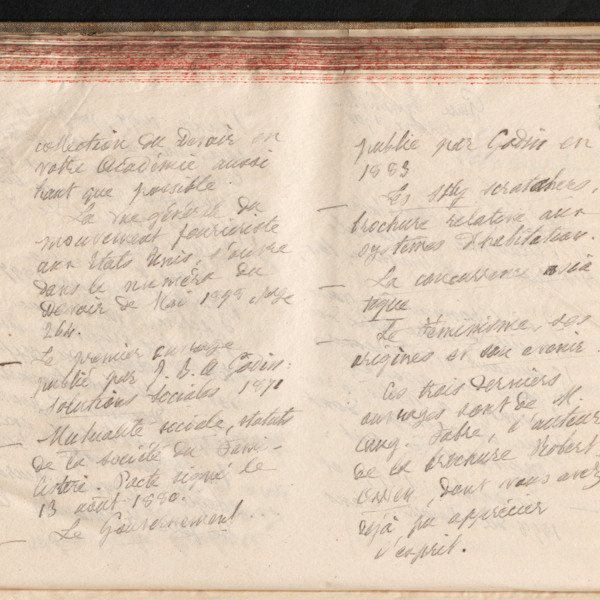 collection du Devoir en
votre Académie aussi
tant que possible.
La vue générale du
mouvement fouriériste
aux Etats Unis, s'ouvre
dans le numéro du
Devoir de Mai 1898 page
264.
Le premier ouvrage
publié par J. B. A Godin:
Solutions sociales 1871
Mutualité sociale, statuts
de la société du Fami-
listère. Pacte signé le
13 août 1880.
Le Gouvernement
publié par Godin en
1883
Les Sky scratchers,
brochure relative aux
systèmes d'habitation.
La concurrence asia
tique
Le Féminisme, ses
origines et son avenir
Ces trois derniers
ouvrages sont de M.
Aug. Fabre, l'auteur
de la brochure Robert
Owen, dont vous avez
déjà pu apprécier
l'esprit.